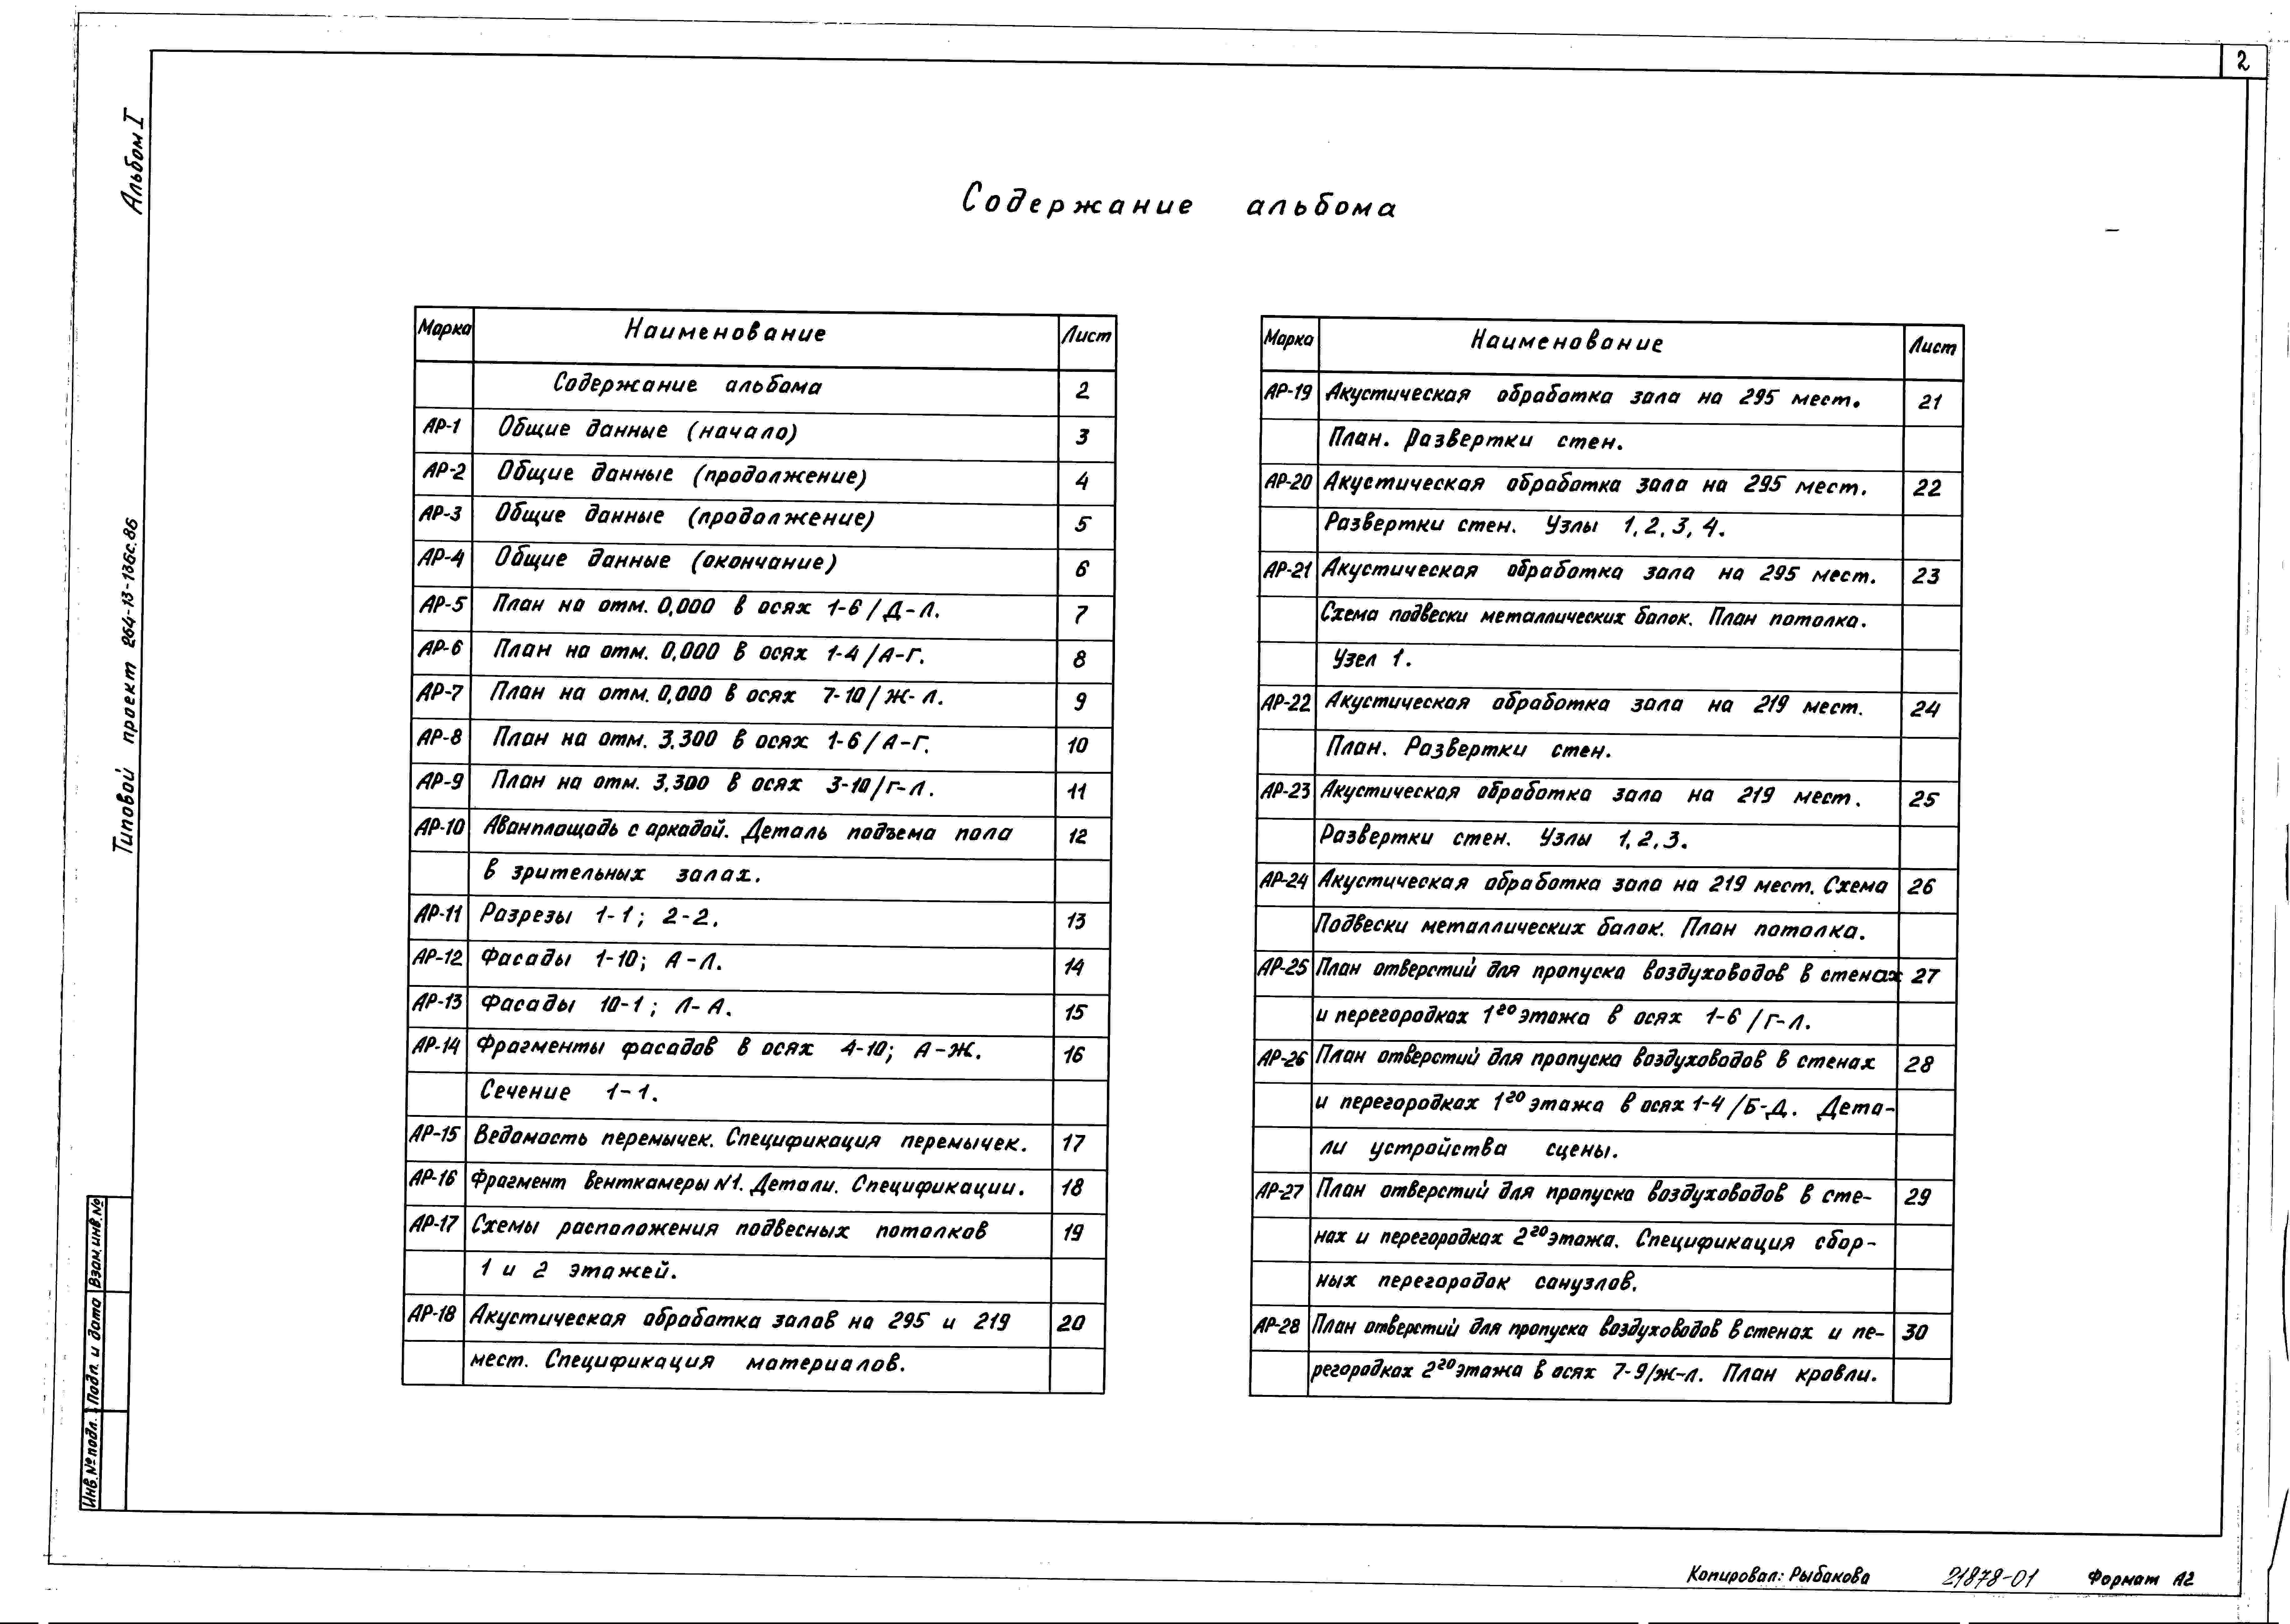 2
Альбом I
Типовой проект 264-13-136с.86
Содержание альбома
Марка Наименование Лист
Содержание альбома 2
АР-1 Общие данные (начало) 3
АР-2 Общие данные (продолжение) 4
АР-3 Общие данные (продолжение) 5
АР-4 Общие данные (окончание) 6
АР-5 План на отм. 0,000 в осях 1-6/Д-Л. 7
АР-6 План на отм. 0,000 в осях 1-4/А-Г. 8
АР-7 План на отм. 0,000 в осях 7-10/Ж-Л. 9
АР-8 План на отм. 3.300 в осях 1-6/А-Г. 10
АР-9 План на отм. 3,300 в осях 3-10/Г-Л. 11
АР-10 Аванплощадь с аркадой. Деталь подъема пола 12
в зрительных залах.
АР-11 Разрезы 1-1; 2-2. 13
АР-12 Фасады 1-10; А-Л. 14
АР-13 Фасады 10-1; Л-А. 15
АР-14 Фрагменты фасадов в осях 4-10; А-Ж. 16
Сечение 1-1.
АР-15 Ведомость перемычек. Спецификация перемычек. 17
АР-16 Фрагмент венткамеры N1. Детали. Спецификации. 18
АР-17 Схемы расположения подвесных потолков 19
1 и 2 этажей.
АР-18 Акустическая обработка залов на 295 и 219 20
мест. Спецификация материалов.
Марка Наименование Лист
АР-19 Акустическая обработка зала на 295 мест. 21
План. Развертки стен.
АР-20 Акустическая обработка зала на 295 мест. 22
Развертки стен. Узлы 1, 2, 3, 4.
АР-21 Акустическая обработка зала на 295 мест. 23
Схема подвески металлических балок. План потолка.
Узел 1.
АР-22 Акустическая обработка зала на 219 мест. 24
План. Развертки стен.
АР-23 Акустическая обработка зала на 219 мест. 25
Развертки стен. Узлы 1, 2, 3.
АР-24 Акустическая обработка зала на 219 мест. Схема 26
Подвески металлических балок. План потолка.
АР-25 План отверстий для пропуска воздуховодов в стенах 27
и перегородках 1го этажа в осях 1-6/Г-Л.
АР-26 План отверстий для пропуска воздуховодов в стенах 28
и перегородках 1го этажа в осях 1-4/Б-Д. Дета-
ли устройства сцены.
АР-27 План отверстий для пропуска воздуховодов в сте- 29
нах и перегородках 2го этажа. Спецификация сбор-
ных перегородок санузлов.
АР-28 План отверстий для пропуска воздуховодов в стенах и пе- 30
регородках 2го этажа в осях 7-9/Ж-Л. План кровли.
Инв. № подл. Подп. и дата Взам. инв. №
Копировал: Рыбакова 21878-01 Формат А2